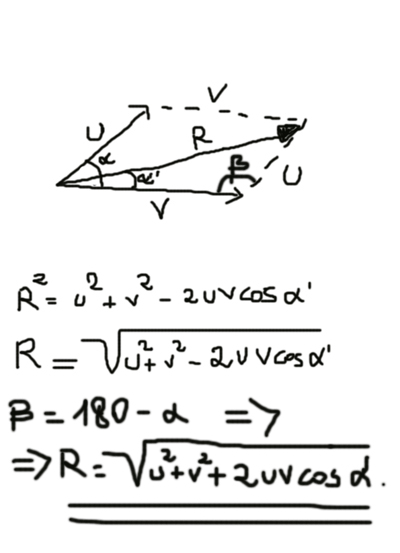 V
U
R
α
β
α'
U
V
R² = u² + v² - 2uvcos α'
R = √u² + v² - 2uvcos α'
β = 180 - α =>
=> R = √u² + v² + 2uvcos α.